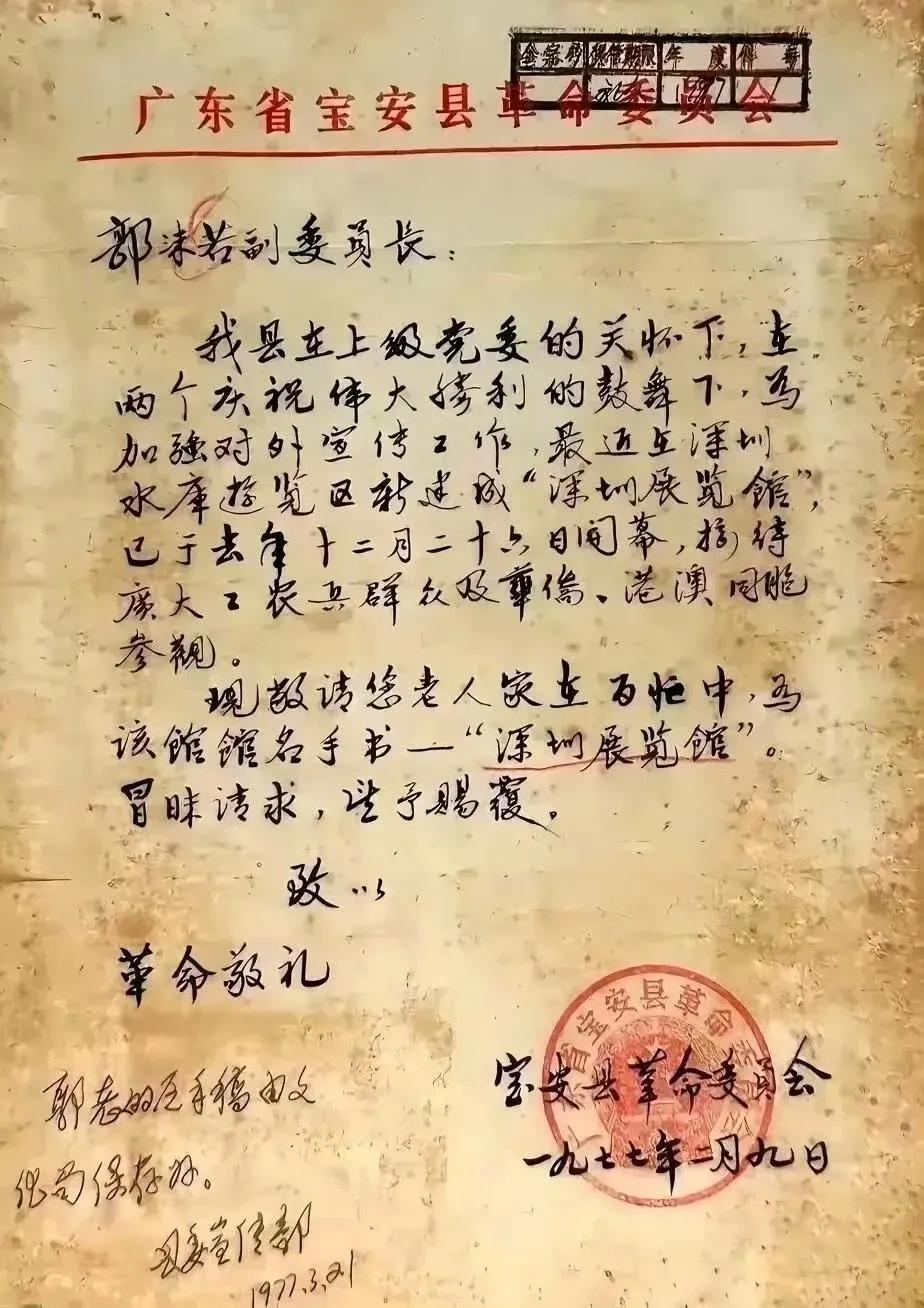 全宗号 保管期限 年度 件号
永久 1977 1
广东省宝安县革命委员会
郭沫若副委员长：
我县在上级党委的关怀下，在
两个庆祝伟大勝利的鼓舞下，為
加強对外宣传工作，最近在深圳
水库遊览区新建成“深圳展览館”，
已于去年十二月二十六日開幕，接待
廣大工农兵群众及華僑、港澳同胞
参觀。
现敬请您老人家在百忙中，為
该館館名手书一“深圳展览館”。
冒昧请求，望予賜覆。
致以
革命敬礼
广东省宝安县革命委员会
宝安县革命委員会
一九七七年二月九日
郭老的手稿由文
化局保存好。
县委宣传部
1977.3.21